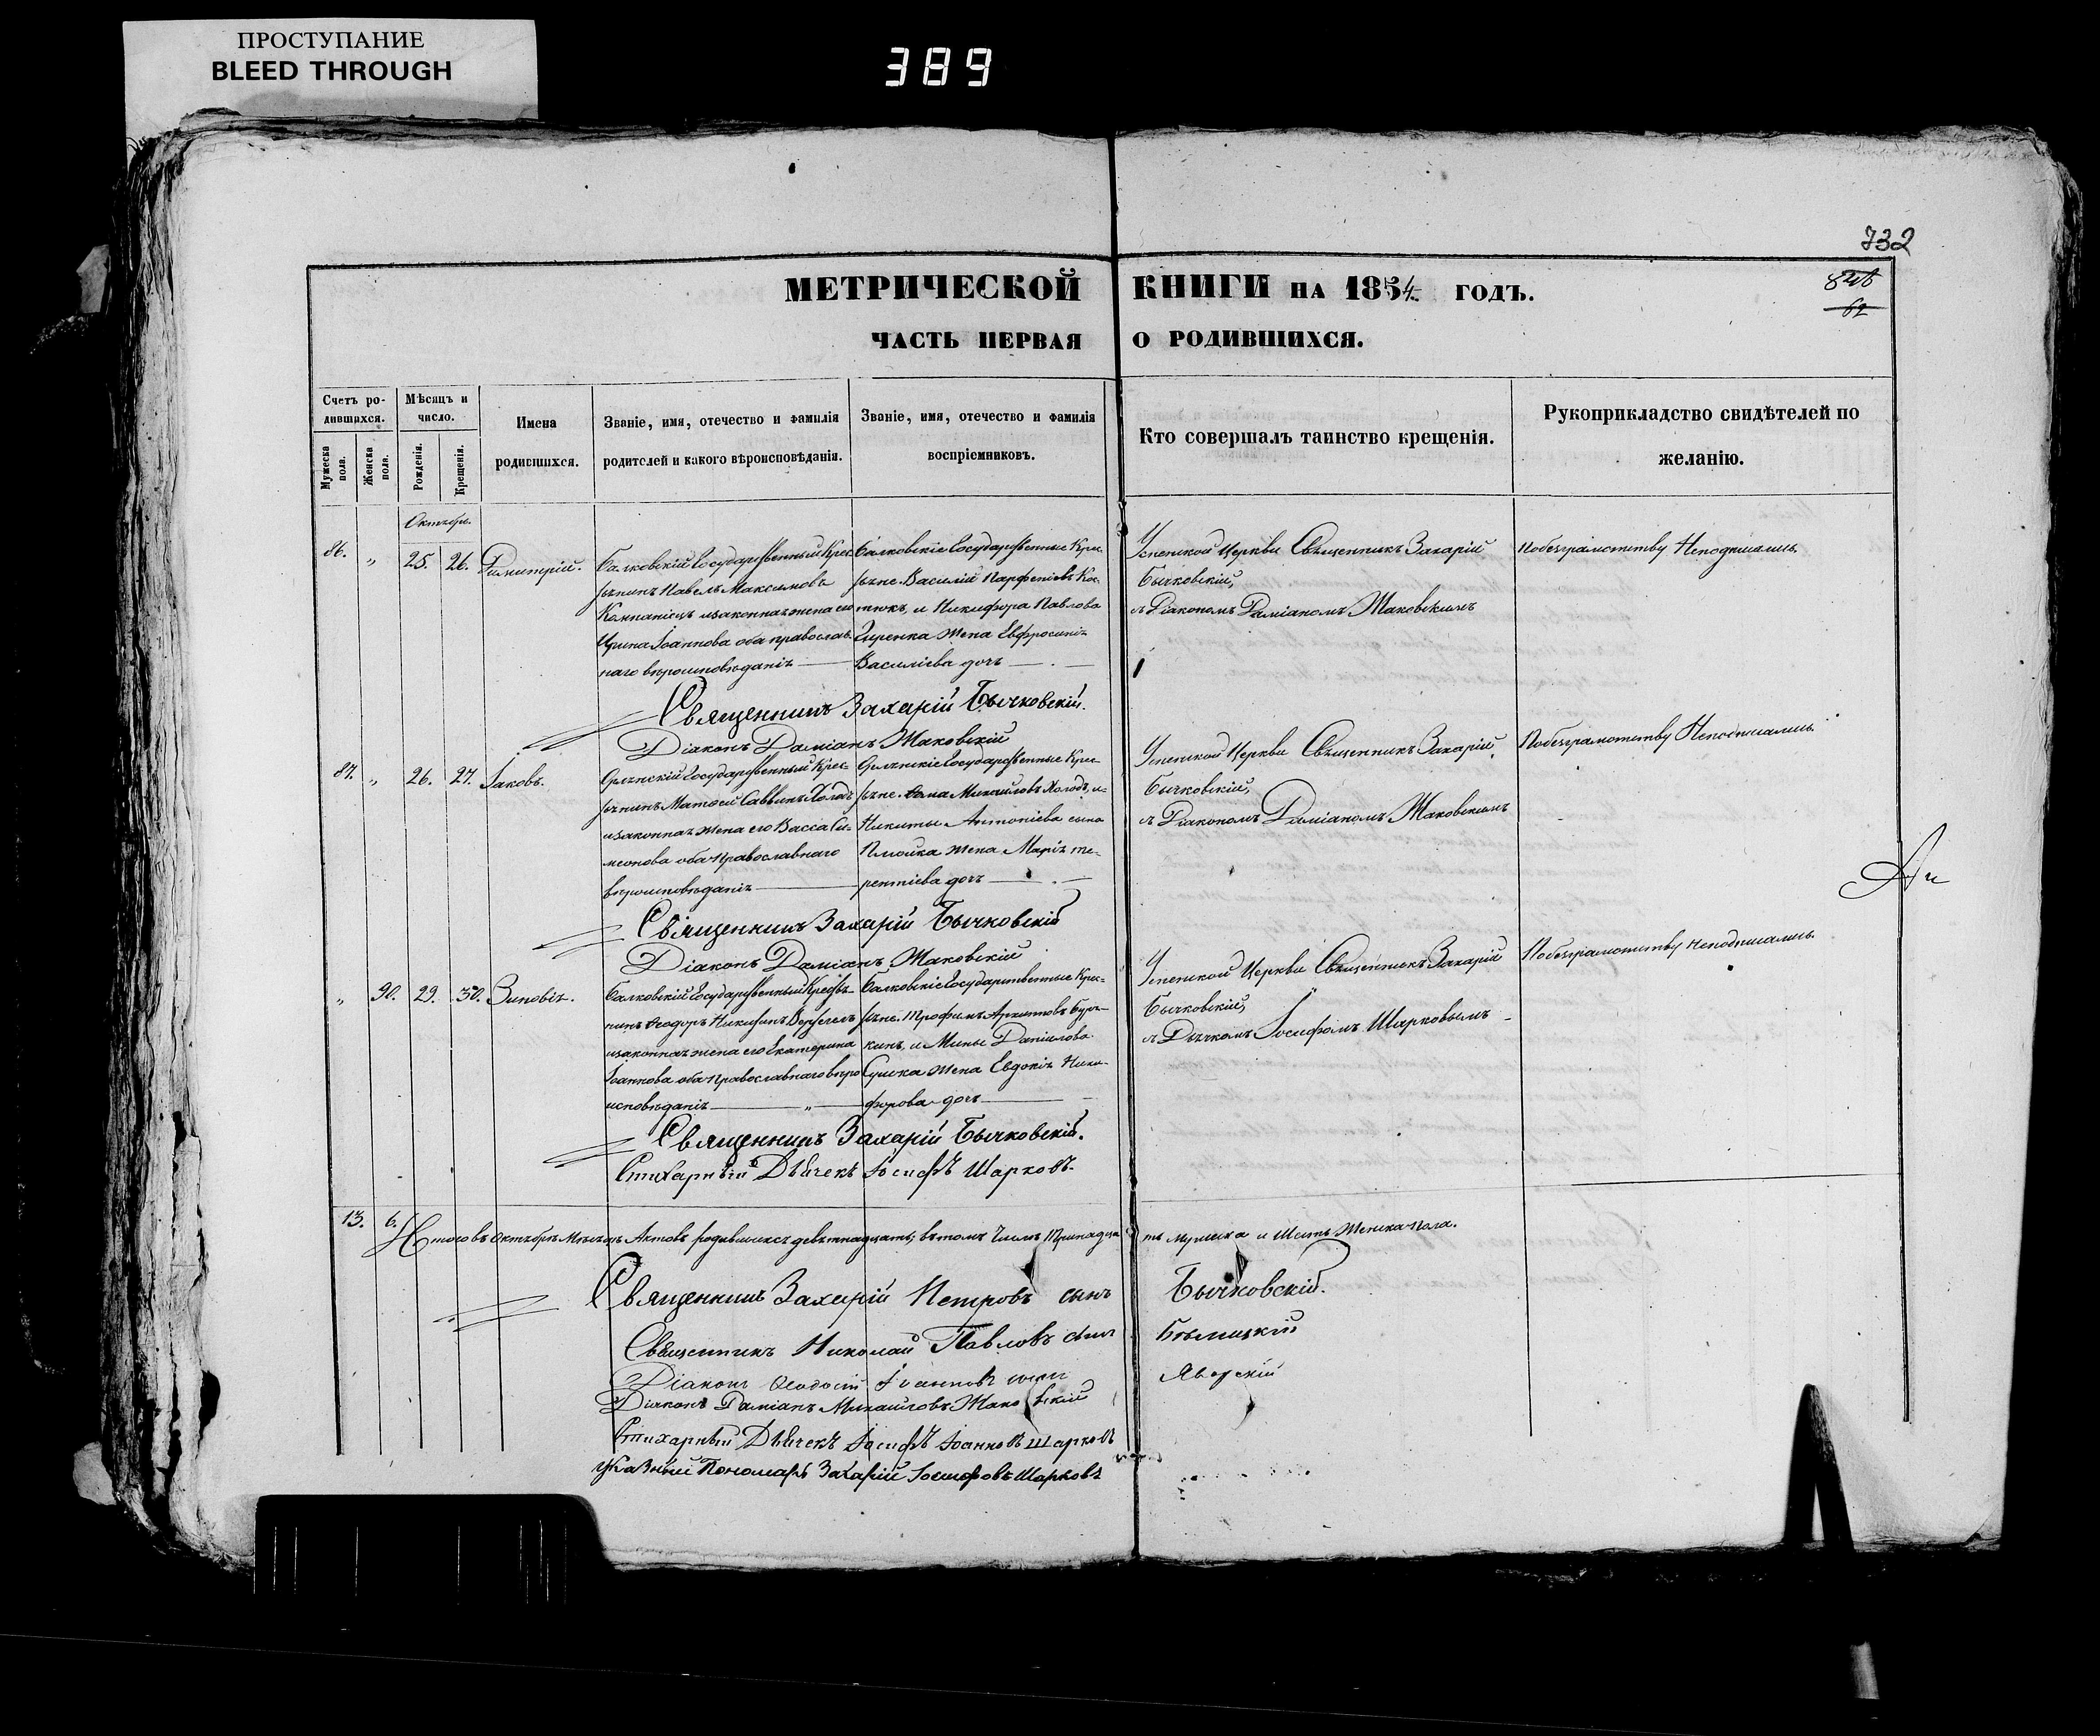 ПРОСТУПАНИЕ
BLEED THROUGH
389
732
МЕТРИЧЕСКОЙ КНИГИ НА 1854 ГОДЪ.
62
ЧАСТЬ ПЕРВАЯ О РОДИВШИХСЯ.
Счетъ родившихся.
Мужеска пола.
Женска пола.
Мѣсяцъ и число.
Рожденія.
Крещенія.
Имена родившихся.
Званіе, имя, отечество и фамилія родителей и какого вѣроисповѣданія.
Званіе, имя, отечество и фамилія воспріемниковъ.
Кто совершалъ таинство крещенія.
Рукоприкладство свидѣтелей по желанію.
Октябрь.
86. „ 25. 26. Димитрій.
Балковскій Государственный Крес-
тьянинъ Павелъ Максимовъ
Компаніецъ и законная жена его
Ирина Іоаннова оба православ-
наго вѣроисповѣданія
Балковскіе Государственные Крес-
тьяне. Василій Парфеніевъ Кос-
тюкъ, и Никифора Павлова
жена Евфросинія
Василіева дочь
Успенской Церкви Священникъ Захарій
Бычковскій,
съ Діакономъ Даміаномъ Жаковскимъ
Побезграмотству Неподписались.
Священникъ Захарій Бычковскій.
Діаконъ Даміанъ Жаковскій
87. „ 26. 27. Іаковъ.
Государственный Крес-
тьянинъ Матѳей Саввинъ Холодъ
и законная жена его Васса Си-
меонова оба Православнаго
вѣроисповѣданія
Государственные Крес-
тьяне. Ѳома Михаиловъ Холодъ, и
Никиты Антоніева сына
жена Марія Те-
рентіева дочь
Успенской Церкви Священникъ Захарій
Бычковскій,
съ Діакономъ Даміаномъ Жаковскимъ
Побезграмотству Неподписались.
Священникъ Захарій Бычковскій
Діаконъ Даміанъ Жаковскій
„ 90. 29. 30. Зиновія.
Балковскій Государственный Крестья-
нинъ Ѳеодоръ Никитинъ
и законная жена его Екатерина
Іоаннова оба Православнаго вѣро
исповѣданія „
Балковскіе Государственные Крес-
тьяне. Трофимъ Архиповъ Бург-
кинъ, и Мины Даніилова
Сушка жена Евдокія Ники-
форова дочь
Успенской Церкви Священникъ Захарій
Бычковскій,
съ Дьячкомъ Іосифомъ Шарковымъ
Побезграмотству неподписались.
Священникъ Захарій Бычковскій.
Стихарный Дьячекъ Іосифъ Шарковъ.
13. 6. Итого въ Октябрѣ Мѣсяцѣ Актовъ родившихся девятнадцать; въ томъ числѣ Тринадцать мужеска и Шесть Женска пола.
Священникъ Захарій Петровъ сынъ Бычковскій.
Священникъ Николай Павловъ сынъ Бѣлицкій
Діаконъ Ѳеодосій Іоанновъ сынъ Яворскій
Діаконъ Даміанъ Михаиловъ Жаковскій
Стихарный Дьячекъ Іосифъ Іоанновъ Шарковъ
Указный Пономарь Захарій Іосифовъ Шарковъ